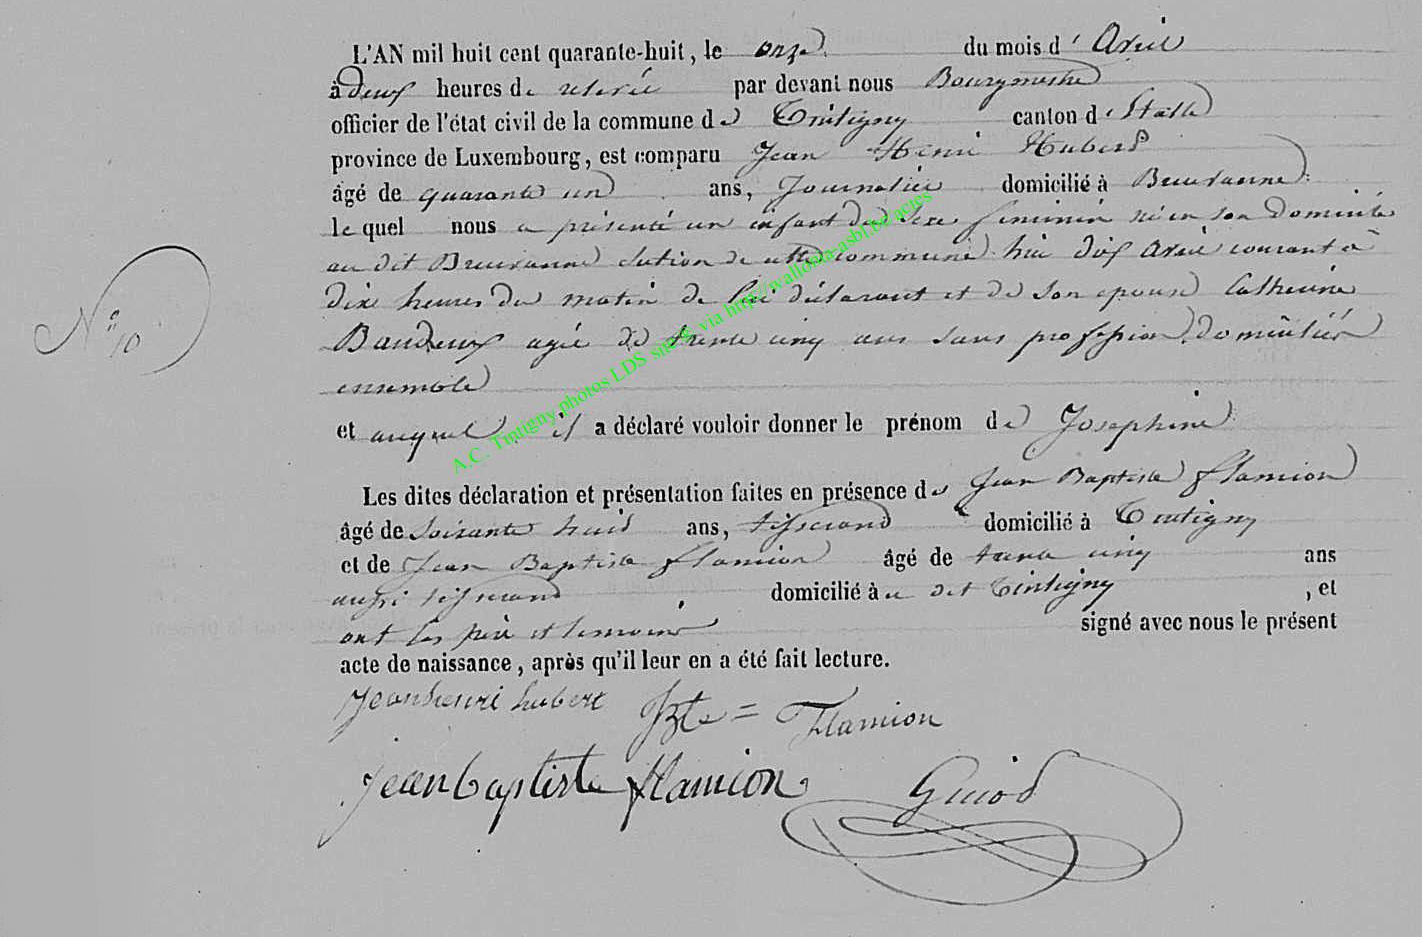 L'AN mil huit cent quarante-huit, le onze du mois d' Avril
à deux heures de relevée par devant nous Bourgmestre
officier de l'état civil de la commune de Tintigny canton d' Etalle
province de Luxembourg, est comparu Jean Henri Hubert
âgé de quarante un ans, Journalier domicilié à Breuvanne
le quel nous a présenté un enfant du sexe féminin né en son Domicile
au dit Breuvanne Section de cette commune hier dix Avril courant à
dix heures du matin de lui déclarant et de son epouse Catherine
Baudeux agée de trente cinq ans sans profession, domiciliés
ensemble
et auquel il a déclaré vouloir donner le prénom de Josephine
Les dites déclaration et présentation faites en présence de Jean Baptiste flamion
âgé de soixante huit ans, tisserand domicilié à Tintigny
et de Jean Baptiste flamion âgé de trente cinq ans
aussi tisserand domicilié à u dit Tintigny , et
ont les père et temoins signé avec nous le présent
acte de naissance, après qu'il leur en a été fait lecture.
N° 10
Jeanhenri hubert JBte = Flamion
jeanbaptiste flamion Guiod
A.C. Tintigny photos LDS situés via http://wallonia-asbl.be/actes